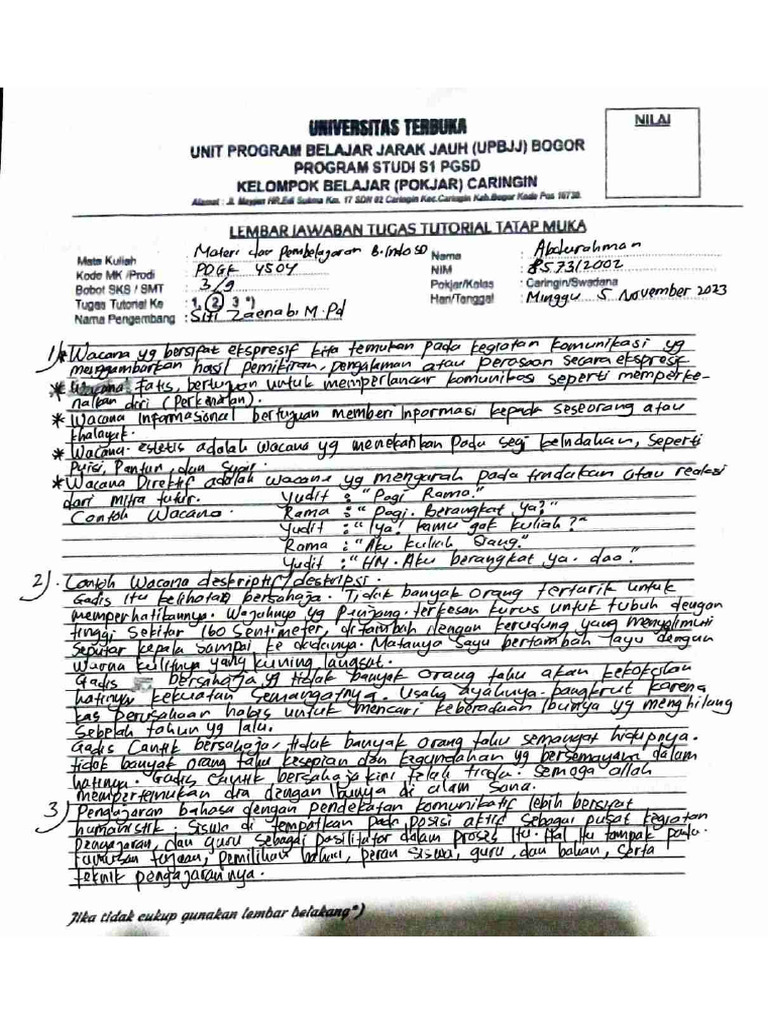 UNIVERSITAS TERBUKA
UNIT PROGRAM BELAJAR JARAK JAUH (UPBJJ) BOGOR
PROGRAM STUDI S1 PGSD
KELOMPOK BELAJAR (POKJAR) CARINGIN
Alamat : JL. Mayjen HR.Edi Sukma Km. 17 SDN 02 Caringin Kec.Caringin Kab.Bogor Kode Pos 16730.
NILAI
LEMBAR JAWABAN TUGAS TUTORIAL TATAP MUKA
Mata Kuliah : Materi dan Pembelajaran B.Indo SD
Kode MK /Prodi : PDGK 4504
Bobot SKS / SMT : 3/9
Tugas Tutorial Ke : 1, 2 3 *)
Nama Pengembang : Siti Zaenab, M.Pd
Nama : Abdurahman
NIM : 857312002
Pokjar/Kelas : Caringin/Swadana
Hari/Tanggal : Minggu 5 November 2023
1) * Wacana yg bersifat ekspresif kita temukan pada kegiatan komunikasi yg
menggambarkan hasil pemikiran, pengalaman atau perasaan secara ekspresif
* Wacana fatis, bertujuan untuk memperlancar komunikasi seperti memperke-
nalkan diri (Perkenalan).
* Wacana Informasional bertujuan memberi Informasi kepada seseorang atau
khalayak.
* Wacana estetis adalah wacana yg menekankan pada segi keindahan, seperti
Puisi, Pantun, dan Syair.
* Wacana Direktif adalah wacana yg mengarah pada tindakan atau reaksi
dari mitra tutur.
Contoh Wacana.
Yudit : "Pagi Rama."
Rama : "Pagi. Berangkat ya?"
Yudit : "Iya! kamu gak kuliah?"
Rama : "Aku kuliah siang."
Yudit : "HM. Aku berangkat ya. dao"
2) Contoh Wacana deskriptif/deskripsi.
Gadis itu kelihatan bersahaja. Tidak banyak orang tertarik untuk
memperhatikannya. Wajahnya yg panjang terkesan kurus untuk tubuh dengan
tinggi Sekitar 160 Sentimeter, ditambah dengan kerudung yang menyelimuti
seputar kepala sampai ke dadanya. Matanya Sayu bertambah layu dengan
warna kulitnya yang kuning langsat.
Gadis bersahaja yg tidak banyak orang tahu akan kekokohan
hatinya kekuatan Semangatnya. Usaha ayahnya bangkrut karena
kas perusahaan habis untuk mencari keberadaan Ibunya yg menghilang
Sebelah tahun yg lalu.
Gadis Cantik bersahaja, tidak banyak orang tahu semangat hidupnya.
tidak banyak orang tahu kesepian dan kegundahan yg bersemayam dalam
hatinya. Gadis Cantik bersahaja kini telah tiada. Semoga allah
mempertemukan dia dengan Ibunya di alam Sana.
3) Pengajaran bahasa dengan pendekatan komunikatif lebih bersifat
humanistik. Siswa di tempatkan pada posisi aktif sebagai pusat kegiatan
pengajaran, dan guru sebagai pasilitator dalam proses Itu. Hal Itu tampak pada
rumusan tujuan, pemilihan bahan, peran siswa, guru, dan bahan, serta
teknik pengajarannya.
Jika tidak cukup gunakan lembar belakang*)